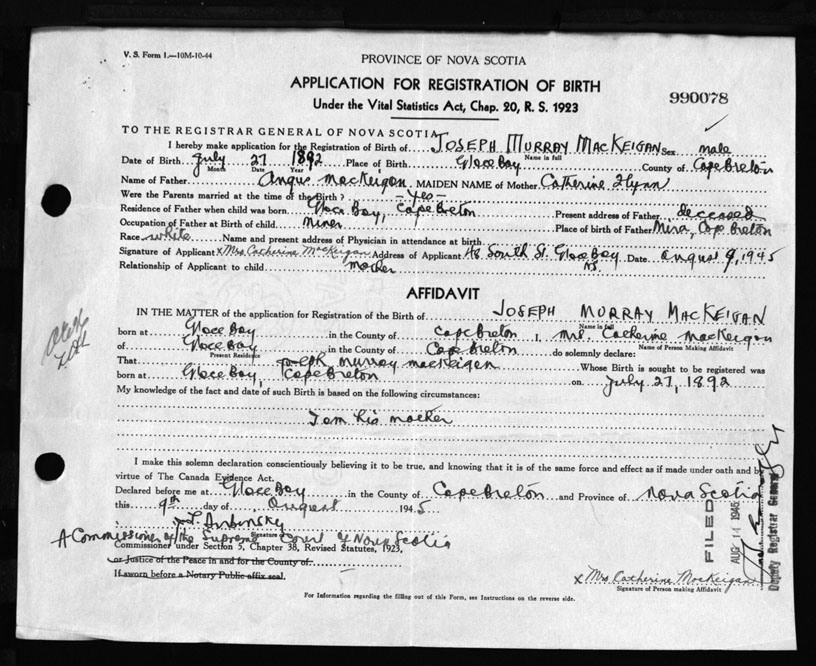 V. S. Form 1.—10M-10-44
PROVINCE OF NOVA SCOTIA
APPLICATION FOR REGISTRATION OF BIRTH
990078
Under the Vital Statistics Act, Chap. 20, R. S. 1923
TO THE REGISTRAR GENERAL OF NOVA SCOTIA
I hereby make application for the Registration of Birth of JOSEPH MURRAY MACKEIGAN Sex male
Name in full
Date of Birth July 27 1892 Place of Birth Glace Bay County of Cape Breton
Month Date Year
Name of Father Angus MacKeigan MAIDEN NAME of Mother Catherine Flynn
Were the Parents married at the time of the Birth? Yes
Residence of Father when child was born Glace Bay, Cape Breton Present address of Father deceased
Occupation of Father at Birth of child miner Place of birth of Father Mira, Cape Breton
Race white Name and present address of Physician in attendance at birth
Signature of Applicant x Mrs Catherine MacKeigan Address of Applicant 48 South St. Glace Bay Date August 9, 1945
N.S.
Relationship of Applicant to child mother
AFFIDAVIT
IN THE MATTER of the application for Registration of the Birth of JOSEPH MURRAY MACKEIGAN
Name in full
born at Glace Bay in the County of Cape Breton I, Mrs. Catherine MacKeigan
Name of Person Making Affidavit
of Glace Bay in the County of Cape Breton do solemnly declare:
Present Residence
That Joseph Murray MacKeigan Whose Birth is sought to be registered was
born at Glace Bay, Cape Breton on July 27, 1892
My knowledge of the fact and date of such Birth is based on the following circumstances:
I am his mother
I make this solemn declaration conscientiously believing it to be true, and knowing that it is of the same force and effect as if made under oath and by
virtue of The Canada Evidence Act.
Declared before me at Glace Bay in the County of Cape Breton and Province of Nova Scotia
this 9th day of August 1945
A Commissioner of the Supreme Court of Nova Scotia
Signature of
Commissioner under Section 5, Chapter 38, Revised Statutes, 1923,
or Justice of the Peace in and for the County of
If sworn before a Notary Public affix seal.
x Mrs Catherine MacKeigan
Signature of Person making Affidavit
For Information regarding the filling out of this Form, see Instructions on the reverse side.
FILED
AUG 14 1945
Deputy Registrar General